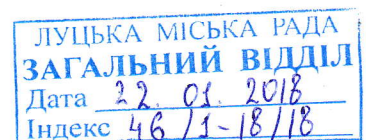 ЛУЦЬКА МІСЬКА РАДА
ЗАГАЛЬНИЙ ВІДДІЛ
Дата 22. 01. 2018
Індекс 46/1-18/18